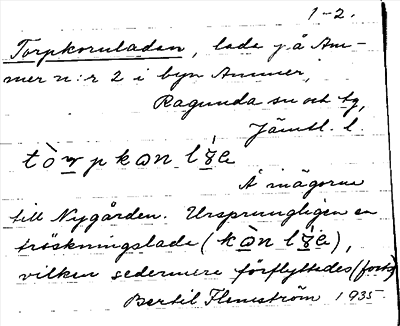 1-2.
Torpkornladan, lada på Am-
mer n:r 2 i byn Ammer,
Ragunda sn och tg,
Jämtl. l.
Å inägorna
till Nygården. Ursprungligen en
tröskningslada (
vilken sedermera förflyttades (forts)
Bertil Flemström 1935